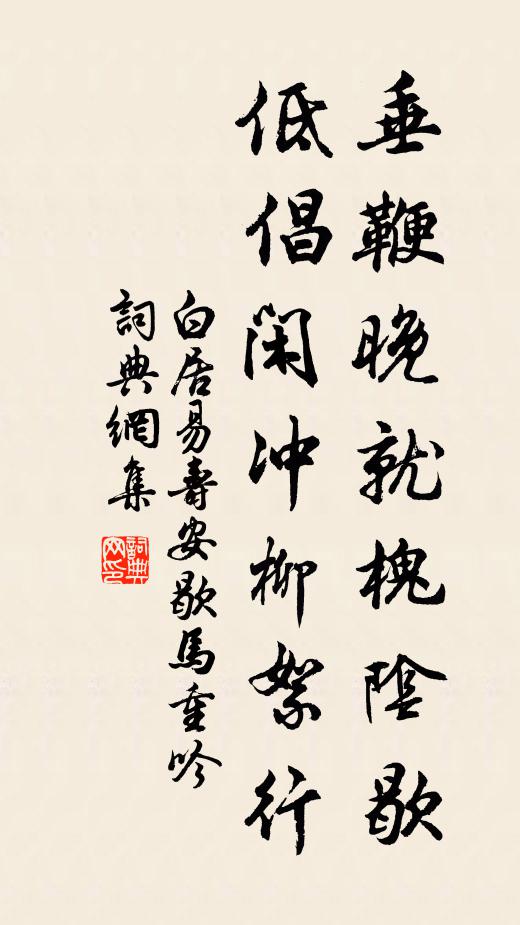 垂鞭晚就槐陰歇
低倡閑冲柳絮行
白居易壽安歇馬重吟
詞典網集
詞典網印